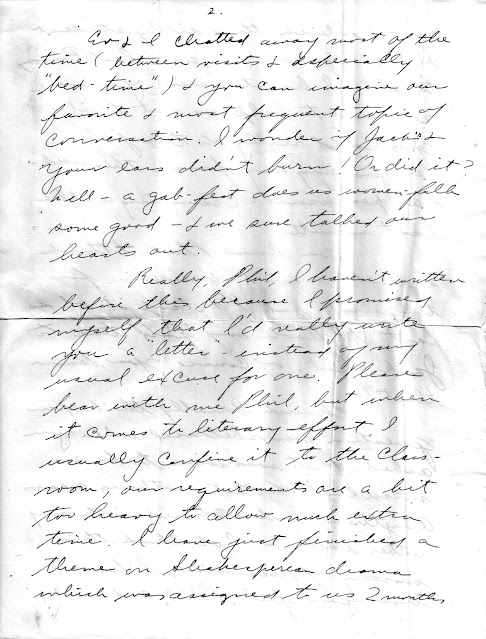 2.
Ev & I chatted away most of the
time (between visits & especially
"bed-time") & you can imagine our
favorite & most frequent topic of
conversation. I wonder if Jack's &
your ears didn't burn! Or did it?
Well - a gab-fest does us women-folk
some good - & we sure talked our
hearts out.
Really, Phil, I haven't written
before this because I promised
myself that I'd really write
you a "letter" - instead of my
usual excuse for one. Please
bear with me Phil, but when
it comes to literary effort, I
usually confine it to the class-
room, our requirements are a bit
too heavy to allow much extra
time. I have just finished a
theme on Shakesperean drama
which was assigned to us 2 months